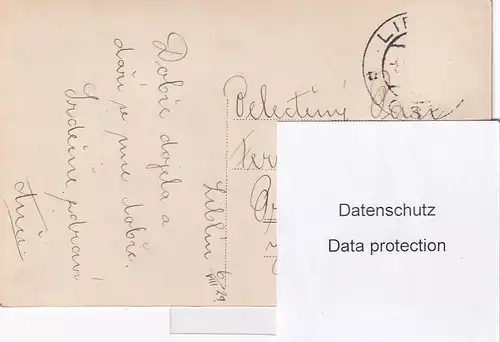 Dobře dojela a
daří se mně dobře.
Srdečně zdraví
Liblín 6/VIII 29
Velectěný Pan
LI
Datenschutz
Data protection